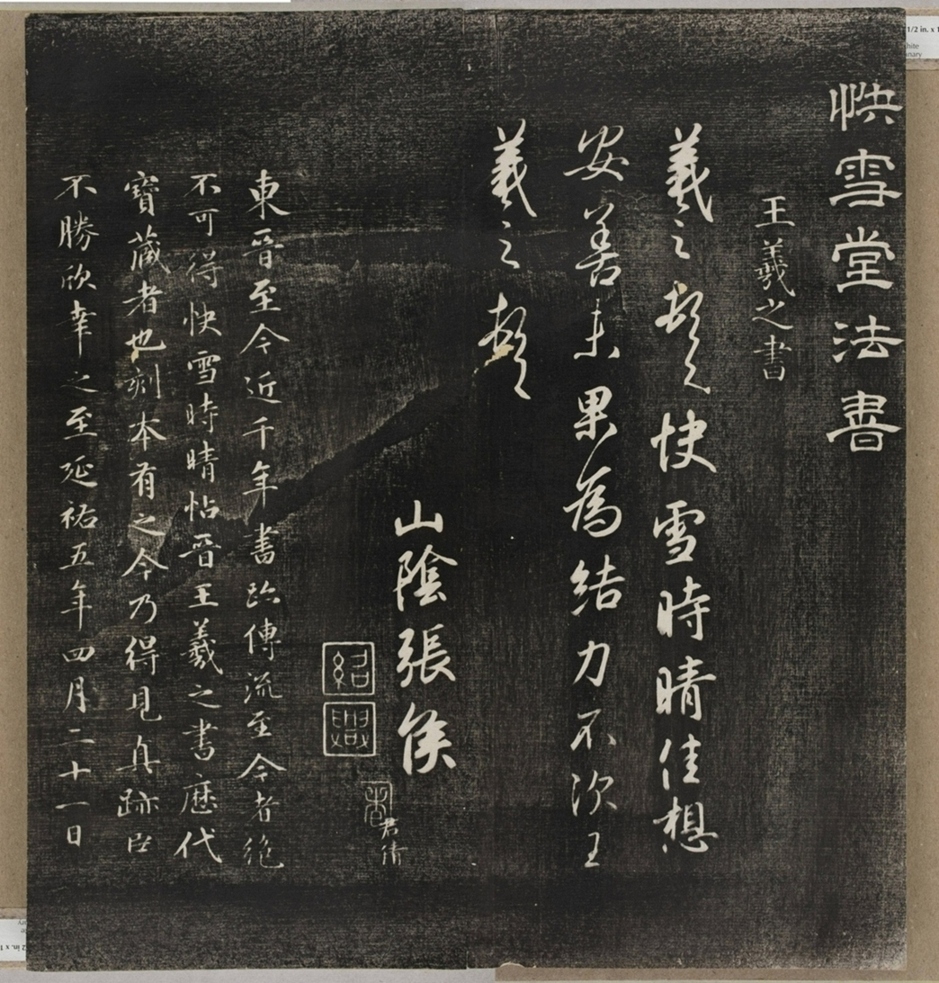 快雪堂法書
王羲之書
羲之頓首快雪時晴佳想
安善未果為結力不次王
羲之頓首
山陰張侯
紹興
君倩
東晉至今近千年書跡傳流至今者絕
不可得快雪時晴帖晉王羲之書歷代
寶藏者也刻本有之今乃得見真跡臣
不勝欣幸之至延祐五年四月二十一日
1/2 in. x 1